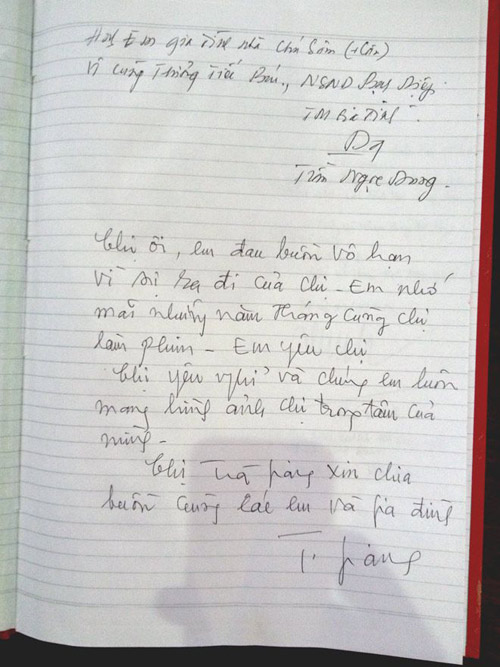 Em gia đình nhà chú Sâm
Vô cùng thương tiếc, NSND
TM gia đình
Trần Ngọc
Chị ơi, em đau buồn vô hạn
vì sự ra đi của chị - Em nhớ
mãi những năm tháng cùng chị
làm phim - Em yêu chị
Chị yên nghỉ và chúng em luôn
mang hình ảnh chị trong tâm của
mình -
Chị Trà Giang xin chia
buồn cùng các em và gia đình
T. Giang